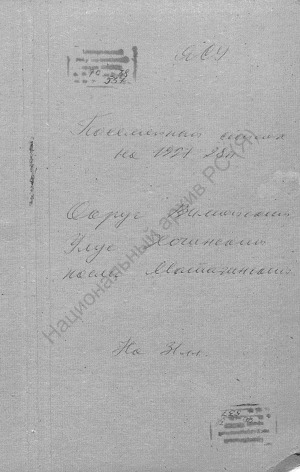 ЯСУ
Посемейный список
на 1927 28гг
Округ Вилюйский
Улус Хочинский
наслег Мастахский
На 31 лл.
Национальный архив РС(Я)